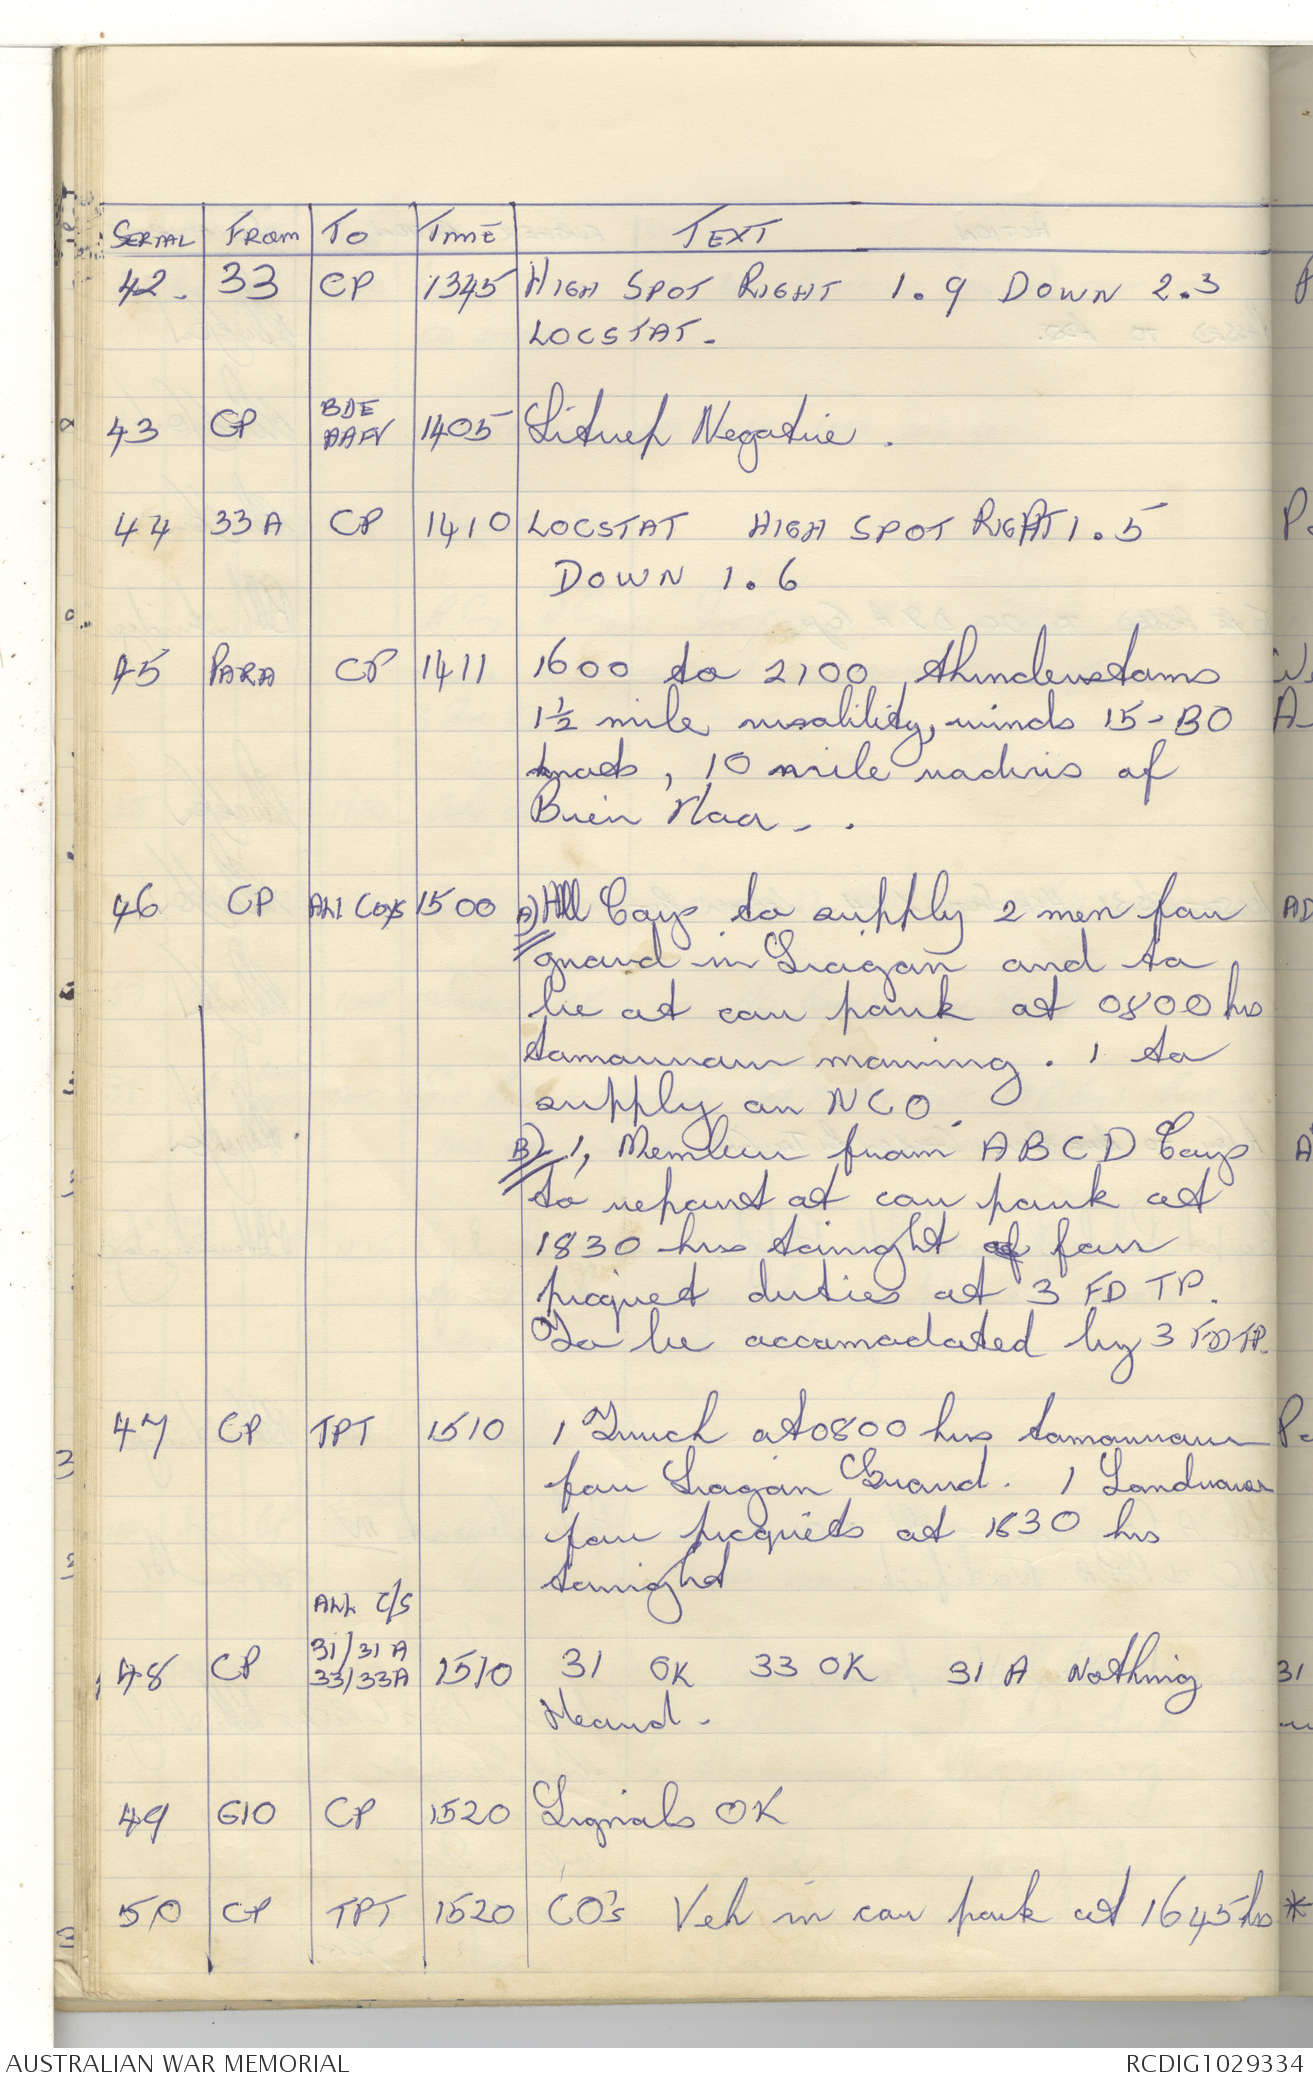 SERIAL FROM TO TIME TEXT
42. 33 CP 1345 HIGH SPOT RIGHT 1.9 DOWN 2.3
LOCSTAT.
43 CP BDE AAFV 1405 Sitrep Negative.
44 33A CP 1410 LOCSTAT HIGH SPOT RIGHT 1.5
DOWN 1.6
45 PARA CP 1411 1600 to 2100 thunderstorms
1½ mile visability, winds 15-30
knots, 10 mile radius of
Bien Hoa.
46 CP ALL COYS 1500 A) All Coys to supply 2 men for
guard in Siagon and to
be at car park at 0800 hrs
tomorrow morning. 1 to
supply an NCO.
B) 1, Member from A B C D Coys
to report at car park at
1830 hrs tonight for
picquet duties at 3 FD TP.
To be accomodated by 3 FD TP.
47 CP TPT 1510 1 Truck at 0800 hrs tomorrow
for Siagon Guard. 1 Landrover
for picquets at 1630 hrs
tonight
ALL C/S
48 CP 31/31A 33/33A 1510 31 OK 33 OK 31A Nothing
Heard.
49 610 CP 1520 Signals OK
50 CP TPT 1520 CO's Veh in car park at 1645 hrs *
AUSTRALIAN WAR MEMORIAL RCDIG1029334